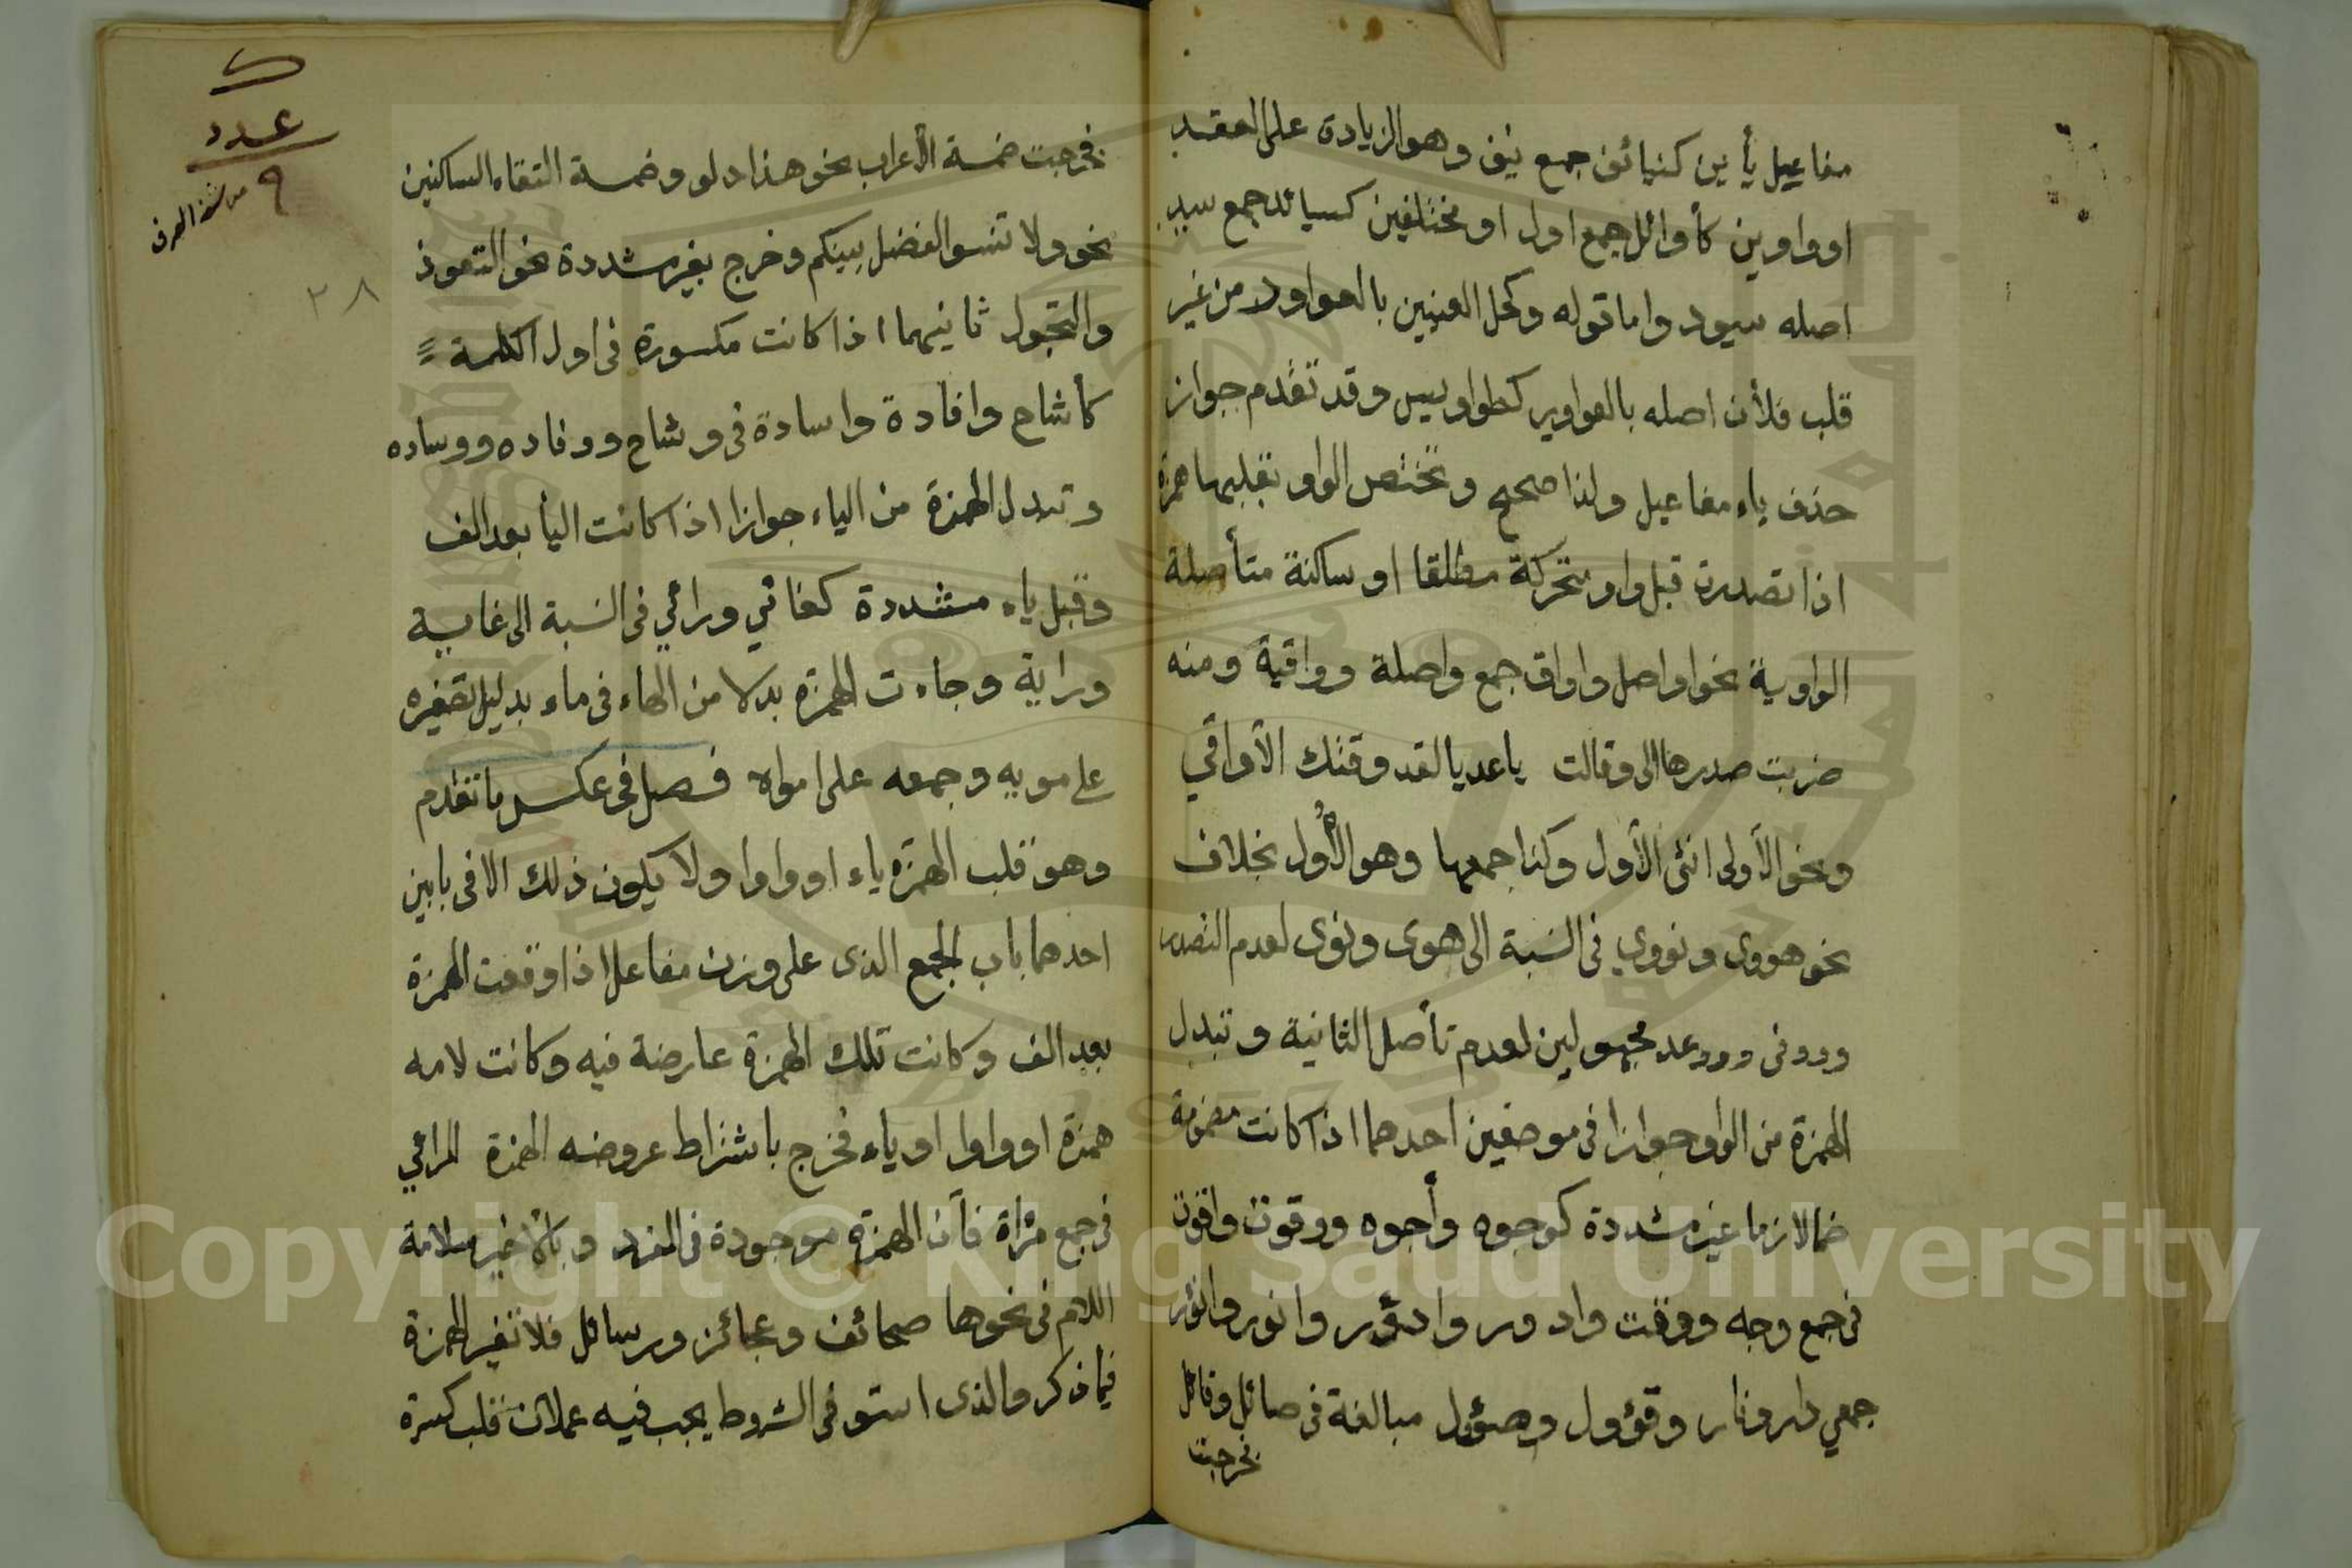 مفاعيل يأين كنيائف جمع نيف وهو الزيادة على العقد
او واوين كأوائل جمع اول او مختلفين كسيائد جمع سيد
اصله سيود واما قوله وكحل العينين بالعواور من غير
قلب فلأن اصله بالعواوير كطواويس وقد تقدم جواز
حذف ياء مفاعيل ولذا صحح وتختص الواو بقلبها همزة
اذا تصدرت قبل واو متحركة مطلقا او ساكنة متأصلة
الواوية نحو اواصل واواق جمع واصلة وواقية ومنه
ضربت صدرها الى وقالت ياعديا لقد وقتك الأواقي
ونحو الأولى انثى الأول وكذا جمعها وهو الأول بخلاف
نحو هووى ونووي في النسبة الى هوى ونوى لعدم التصدر
وووفى وووعد مجهولين لعدم تأصل الثانية وتبدل
الهمزة من الواو جوازا فى موضعين احدهما اذا كانت مضمومة
ضما لازما غير مشددة كوجوه وأجوه ووقوت واقوت
فى جمع وجه ووقت وادور وادؤر وانور وانؤر
جمعي دار ونار وقؤول وصؤول مبالغة فى صائل وقائل
فخرجت
ك
عدد
٩
من شذا العرف
٢٨
فخرجت ضمة الأعراب نحو هذا دلو وضمة التقاء الساكنين
نحو ولا تنسوا الفضل بينكم وخرج بغير مشددة نحو التعوذ
والتجول ثانيهما اذا كانت مكسورة فى اول الكلمة
كأشاح وافادة واسادة فى وشاح ووفاده ووساده
وتبدل الهمزة من الياء جوازا اذا كانت اليأ بعد الف
وقبل ياء مشددة كغائي ورائي فى النسبة الى غاية
وراية وجاءت الهمزة بدلا من الهاء فى ماء بدليل تصغيره
على مويه وجمعه على امواه فصل فى عكس ما تقدم
وهو قلب الهمزة ياء او واوا ولا يكون ذلك الا فى بابين
احدهما باب الجمع الذى على وزن مفاعل اذا وقعت الهمزة
بعد الف وكانت تلك الهمزة عارضة فيه وكانت لامه
همزة او واوا او ياء فخرج باشتراط عروضه الهمزة المرائي
فى جمع مرأة فأن الهمزة موجودة فى المفرد وبالأخير سلامة
اللام فى نحوها صحائف وعجائز ورسائل فلا تغير الهمزة
فيما ذكر والذى استوفى الشروط يجب فيه عملان قلب كسرة
Copyright © King Saud University